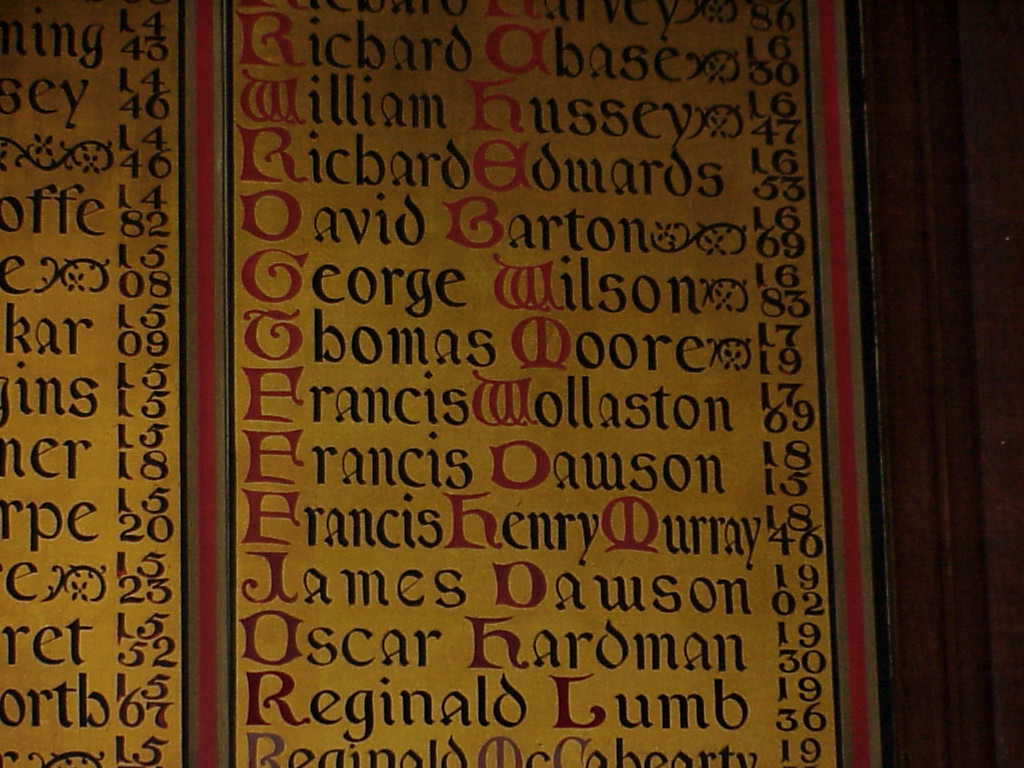 ming 14 43
sey 14 46
14 46
offe 14 82
e 15 08
kar 15 09
gins 15 15
ner 15 18
rpe 15 20
e 15 23
ret 15 52
orth 15 67
15
Richard Harvey 86
Richard Abase 16 30
William Hussey 16 47
Richard Edmards 16 53
David Barton 16 69
George Wilson 16 83
Thomas Moore 17 19
Francis Wollaston 17 69
Francis Dawson 18 15
Francis Henry Murray 18 40
James Dawson 19 02
Oscar Hardman 19 30
Reginald Lumb 19 36
Reginald McCahearty 19